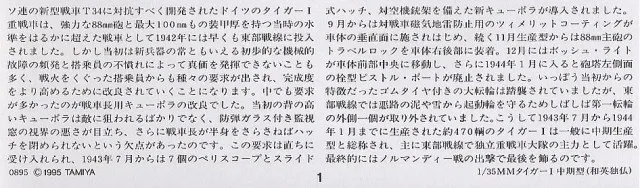 ソ連の新型戦車T34に対抗すべく開発されたドイツのタイガーI
重戦車は、強力な88mm砲と最大100mmもの装甲厚を持つ当時の水
準をはるかに超えた戦車として1942年には早くも東部戦線に投入
されました。しかし当初は新兵器の常ともいえる初歩的な機械的
故障の頻発と搭乗員の不慣れによって真価を発揮できないことも
多く、戦火をくぐった搭乗員からも種々の要求が出され、完成度
をより高めるために改良されていくことになります。中でも要求
が多かったのが戦車長用キューポラの改良でした。当初の背の高
いキューポラは敵に狙われるばかりでなく、防弾ガラス付き監視
窓の視界の悪さが目立ち、さらに戦車長が半身をさらさねばハッ
チを閉められないという欠点があったのです。この要求は直ちに
受け入れられ、1943年7月からは7個のペリスコープとスライド
0895 ©1995 TAMIYA
式ハッチ、対空機銃架を備えた新キューポラが導入されました。
9月からは対戦車磁気地雷防止用のツィメリットコーティングが
車体の垂直面に施されはじめ、続く11月生産型からは88mm主砲の
トラベルロックを車体右後部に装着。12月にはボッシュ・ライト
が車体前部中央に移動し、さらに1944年1月に入ると砲塔左側面
の栓型ピストル・ポートが廃止されました。いっぽう当初からの
特徴だったゴムタイヤ付きの大転輪は踏襲されていましたが、東
部戦線では悪路の泥や雪から起動輪を守るためしばしば第一転輪
の外側一個が取り外されていました。こうして1943年7月から1944
年1月までに生産された約470輌のタイガーIは一般に中期生産
型と総称され、主に東部戦線で独立重戦車大隊の主力として活躍。
最終的にはノルマンディー戦の出撃で最後を飾るのです。
1
1/35MMタイガーI中期型(和英独仏)